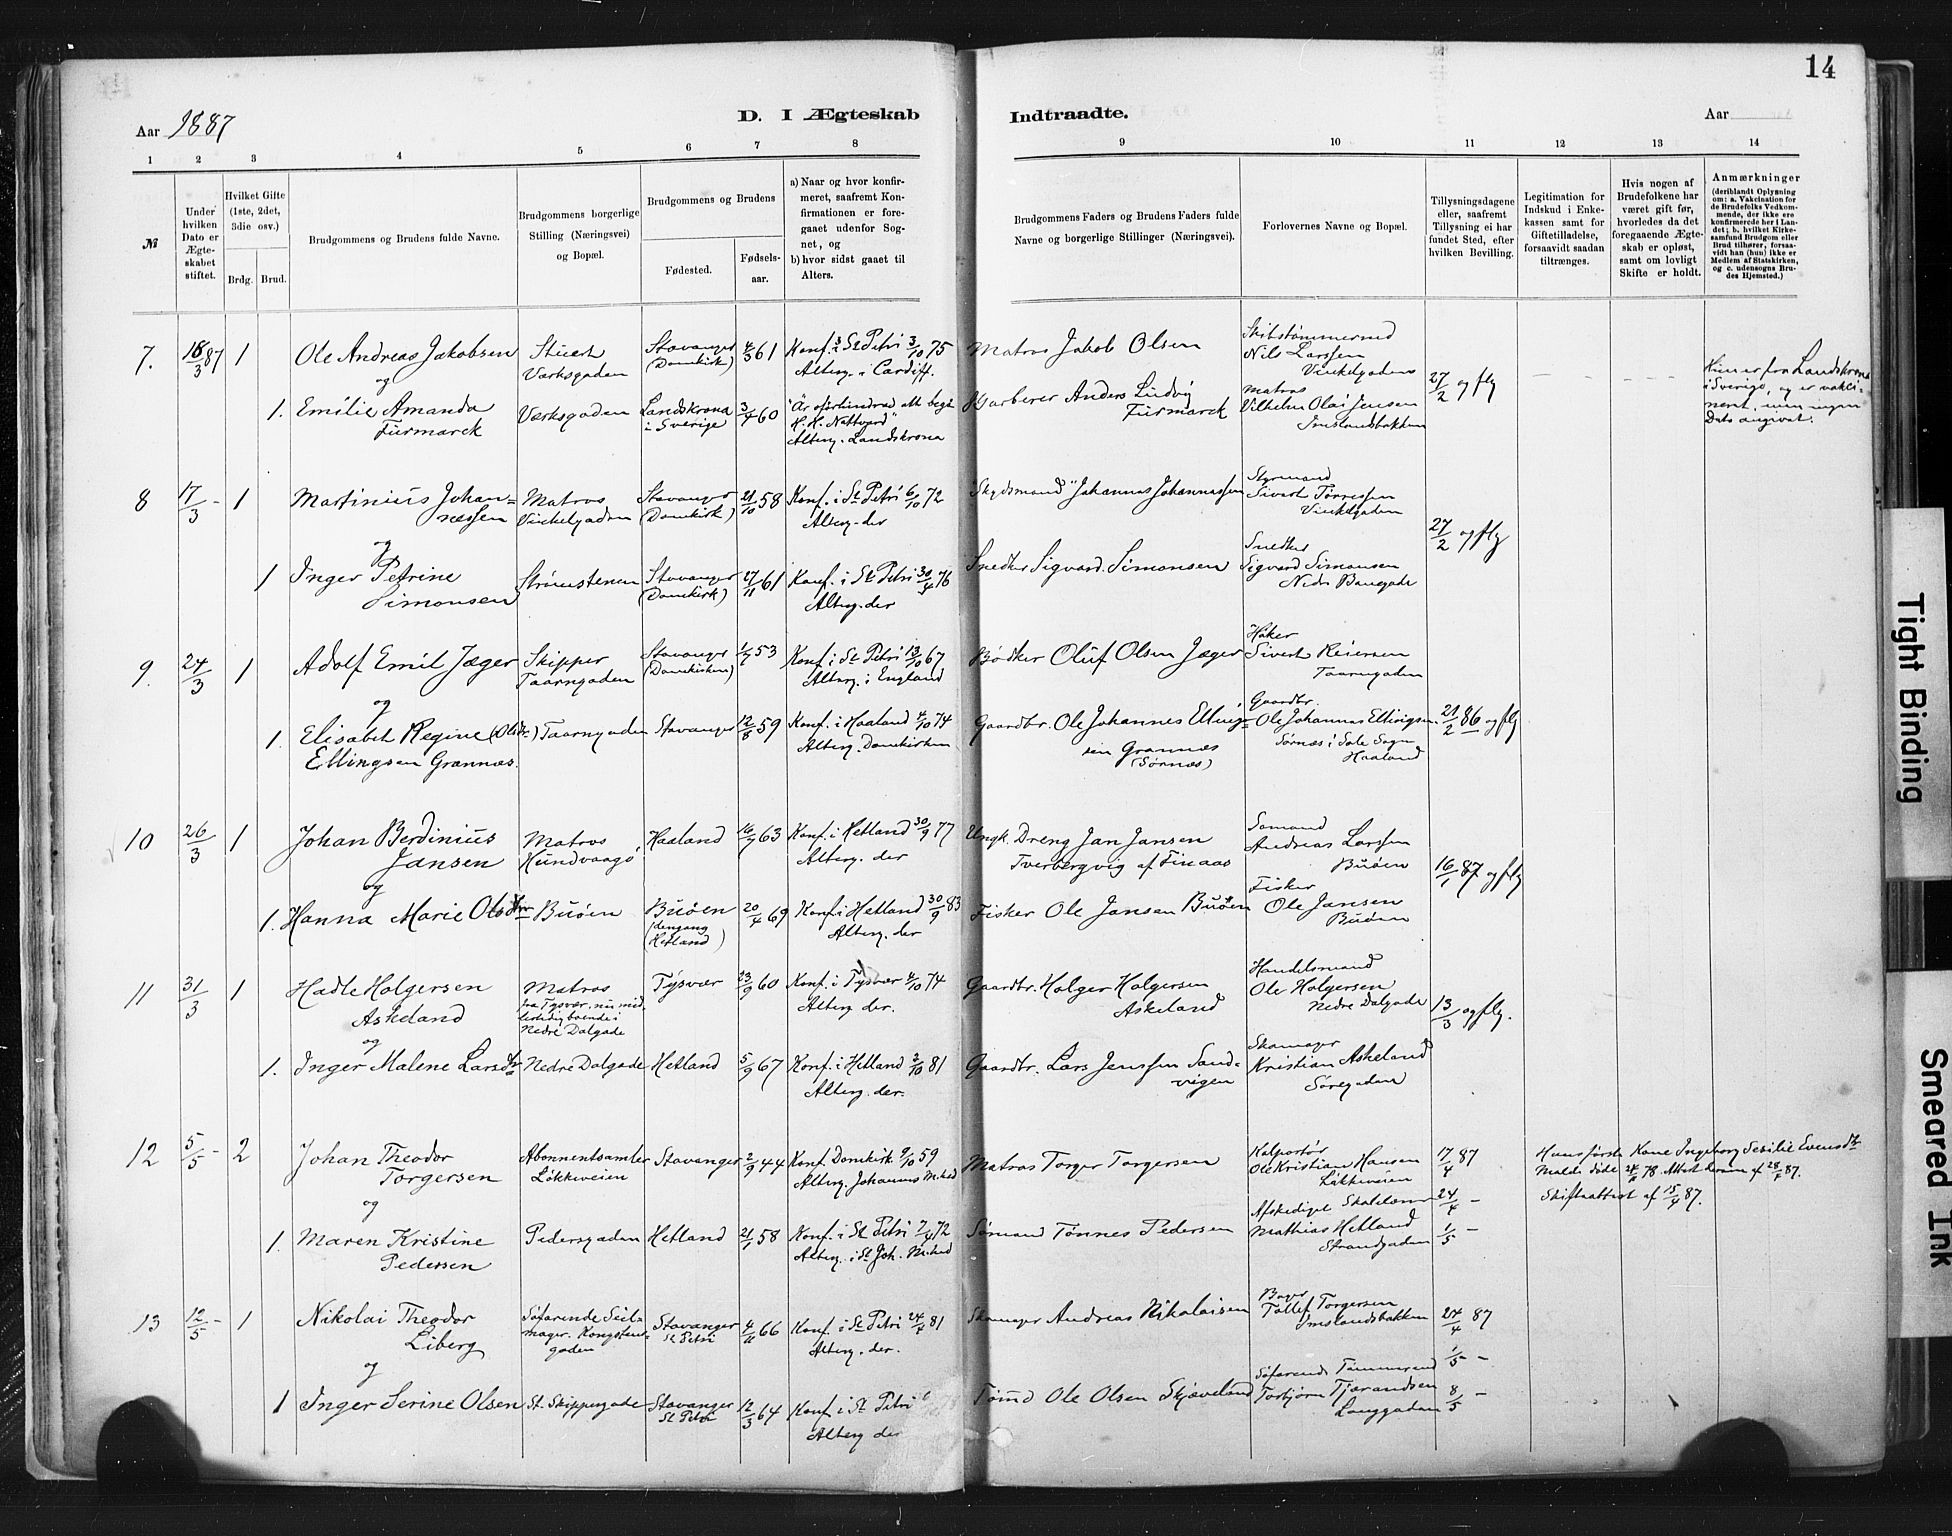 14
Aar 1887
D. I Ægteskab Indtraadte.
Aar
1 2 3 4 5 6 7 8 9 10 11 12 13 14
№
Under hvilken Dato er Ægteskabet stiftet.
Hvilket Gifte (1ste, 2det, 3die osv.)
Brdg. Brud.
Brudgommens og Brudens fulde Navne.
Brudgommens borgerlige Stilling (Næringsvei) og Bopæl.
Brudgommens og Brudens
Fødested.
Fødselsaar.
a) Naar og hvor konfirmeret, saafremt Konfirmationen er foregaaet udenfor Sognet, og
b) hvor sidst gaaet til Alters.
Brudgommens Faders og Brudens Faders fulde Navne og borgerlige Stillinger (Næringsvei).
Forlovernes Navne og Bopæl.
Tillysningsdagene eller, saafremt Tillysning ei har fundet Sted, efter hvilken Bevilling.
Legitimation for Indskud i Enkekassen samt for Giftetilladelse, forsaavidt saadan tiltrænges.
Hvis nogen af Brudefolkene har været gift før, hvorledes da det foregaaende Ægteskab er opløst, samt om lovligt Skifte er holdt.
Anmærkninger
(deriblandt Oplysning om: a. Vakcination for de Brudefolks Vedkommende, der ikke ere konfirmerede her i Landet; b. hvilket Kirkesamfund Brudgom eller Brud tilhører, forsaavidt han (hun) ikke er Medlem af Statskirken, og c. udensogns Brudes Hjemsted.)
7. 18/3 87 1 Ole Andreas Jakobsen
Stuert
Værksgaden
Stavanger
(Domkirk)
4/3 61
Konf. i St Petri 3/10 75
Alterg. i Cardiff.
Matros Jakob Olsen
Skibstømmermd
Nils Larssen
Vinkelgaden
27/2 og flg
og
1. Emilie Amanda
Furmarck
Værksgaden
Landskrona
i Sverige
3/4 60
"Är oförhindrad att begå
H. H. Nattvard"
Alterg. Landskrona
Garberer Anders Ludvig
Furmarck
Matros
Vilhelm Olai Jensen
Imslandsbakken
Hun er fra Landskrona
i Sverige, og er vakcineret, men ingen
Dato angivet.
8 17/3 - 1 Martinius Johannessen
Matros
Vinkelgaden
Stavanger
(Domkirk)
21/10 58
Konf. i St Petri 6/10 72
Alterg. der
"Skydsmand" Johannes Johannessen
Styrmand
Sivert Tørressen
Vinkelgaden
27/2 og flg
og
1 Inger Petrine
Simonsen
Strømstenen
Stavanger
(Domkirk)
27/11 61
Konf. i St Petri 30/4 76
Alterg. der
Snedker Sigvard Simonsen
Snedker
Sigvard Simonsen
Nedre Banegade
9. 24/3 1 Adolf Emil Jæger
Skipper
Taarngaden
Stavanger
(Domkirken)
1/7 53
Konf. i St Petri 13/10 67
Alterg. i England
Bødker Oluf Olsen Jæger
Høker
Sivert Reiersen
Taarngaden
og
1. Elisabet Regine (Olsdtr)
Ellingsen Grannæs.
Taarngaden
Stavanger
12/8 59
Konf. i Haaland 4/10 74
Alterg. Domkirken
Gaardbr. Ole Johannes Ellingsen Grannæs
(Sørnæs)
Gaardbr.
Ole Johannes Ellingsen
Sørnæs i Sole Sogn
Haaland
21/2 86 og flg
10 26/3 1 Johan Berdinius
Jansen
Matros
Hundvaagø
Haaland
16/7 63
Konf. i Hetland 30/9 77
Alterg. der
Ungk. Dreng Jan Jansen
Tverbergvig af Finaas
Sømand
Andreas Larssen
Buøen
16/1 87 og flg
og
1. Hanna Marie Olsdtr
Buøen
Buøen
(dengang
Hetland)
20/4 69
Konf. i Hetland 30/9 83
Alterg. der
Fisker Ole Jansen Buøen
Fisker
Ole Jansen
Buøen
11 31/3 1 Hadle Holgersen
Askeland
Matros
fra Tysvær, nu midlertidig boende i
Nedre Dalgade
Tysvær
23/9 60
Konf. i Tysvær 4/10 74
Alterg. der.
Gaardbr. Holger Holgersen
Askeland
Handelsmand
Ole Holgersen
Nedre Dalgade
13/3 og flg.
og
1. Inger Malene Larsdtr
Nedre Dalgade
Hetland
5/9 67
Konf. i Hetland 2/10 81
Alterg. der.
Gaardbr. Lars Jenssen Sandvigen
Skomager
Kristian Askeland
Søregaden
12 5/5 - 2 Johan Theodor
Torgersen
Abonnentsamler
Løkkeveien
Stavanger
2/9 44
Konf. Domkirk. 9/10 59
Alterg. Johannes M.hed
Matros Torger Torgersen
Kolportør
Ole Kristian Hansen
Løkkeveien
17/4 87
24/4 -
1/5 -
Hans første Kone Ingeborg Sesilie Evensdtr
Molde døde 24/ 78. Attest derom af 28/ 87.
Skifteattest af 15/4 87.
og
1. Maren Kristine
Pedersen
Pedersgaden
Hetland
21/1 58
Konf. i St Petri 7/4 72
Alterg. i St Joh. M.hed
Sømand Tønnes Pedersen
Afskediget
Mathias Hetland
Strandgaden
13 12/5 - 1 Nikolai Theodor
Liberg
Søfarende Seilmager. Kongstensgaden
Stavanger
St Petri
4/11 66
Konf. i St Petri 24/4 81
Alterg. der.
Skomager Andreas Nikolaisen
Bager
Tollef Torgersen
Imslandsbakken
24/4 87
1/5 -
8/5 -
og
1 Inger Serine Olsen
St. Skippergade
Stavanger
St. Petri
12/3 64
Konf. i St Petri
Alterg der
Tømmd Ole Olsen Skjæveland
Søfarende Tømmermd
Torbjørn Tjerandsen
Langgaden
Tight Binding
Smeared Ink